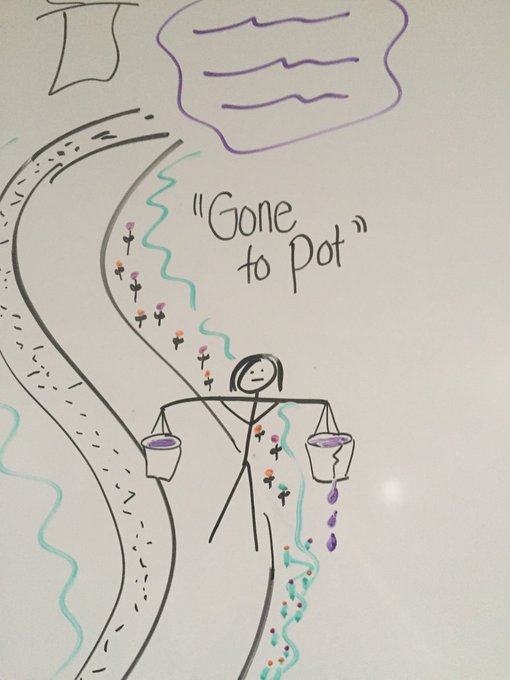 "Gone
to Pot"